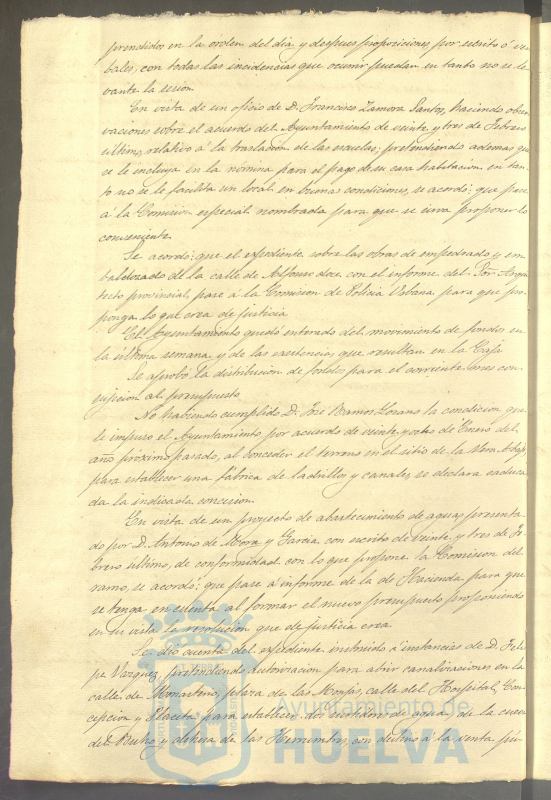 prendidos en la órden del dia y despues proposiciones por escrito ó ver-
bales, con todas las incidencias que ocurrir puedan en tanto no se le-
vante la sesion.
En vista de un oficio de D. Francisco Zamora Santos, haciendo obser-
vaciones sobre el acuerdo del Ayuntamiento de veinte y tres de Febrero
último, relativo á la traslacion de las escuelas, pretendiendo ademas que
se le incluya en la nómina para el pago de su casa habitacion en tan-
to no se le facilita un local en buenas condiciones, se acordó: que pase
á la Comision especial nombrada para que se sirva proponer lo
conveniente.
Se acordó: que el expediente sobre las obras de empedrado y em-
baldozado de la calle de Alfonso doce, con el informe del Sor. Arqui-
tecto provincial, pase a la Comision de Policia Urbana para que pro-
ponga lo que crea de justicia.
El Ayuntamiento quedó enterado del movimiento de fondos en
la última semana y de las existencias que resultan en la Caja.
Se aprobó la distribucion de fondos para el corriente mes con
sujecion al presupuesto.
No habiendo cumplido D. José Ramos Lozano la condicion que
le impuso el Ayuntamiento por acuerdo de veinte y ocho de Enero del
año próximo pasado, al conceder el terreno en el sitio de la Vera
para establecer una fábrica de ladrillos y canales, se declara caduca-
da la indicada concesion.
En vista de un proyecto de abastecimiento de aguas presenta-
do por D. Antonio de Mora y Garcia con escrito de veinte y tres de Fe-
brero último, de conformidad con lo que propone la Comision del
ramo, se acordó: que pase á informe de la de Hacienda para que
se tenga en cuenta al formar el nuevo presupuesto proponiendo
en su vista la resolucion que de justicia crea.
Se dió cuenta del expediente instruido á instancias de D. Feli-
pe Vazquez, pretendiendo autorizacion para abrir canalizaciones en la
calle de Monasterio, plaza de las Monjas, calle del Hospital, Con-
cepcion y Placeta para establecer dos surtidores de agua, de la cuesta
del Buho y dehesa de las Herrumbres, con destino á la venta pú-
Ayuntamiento de
HUELVA